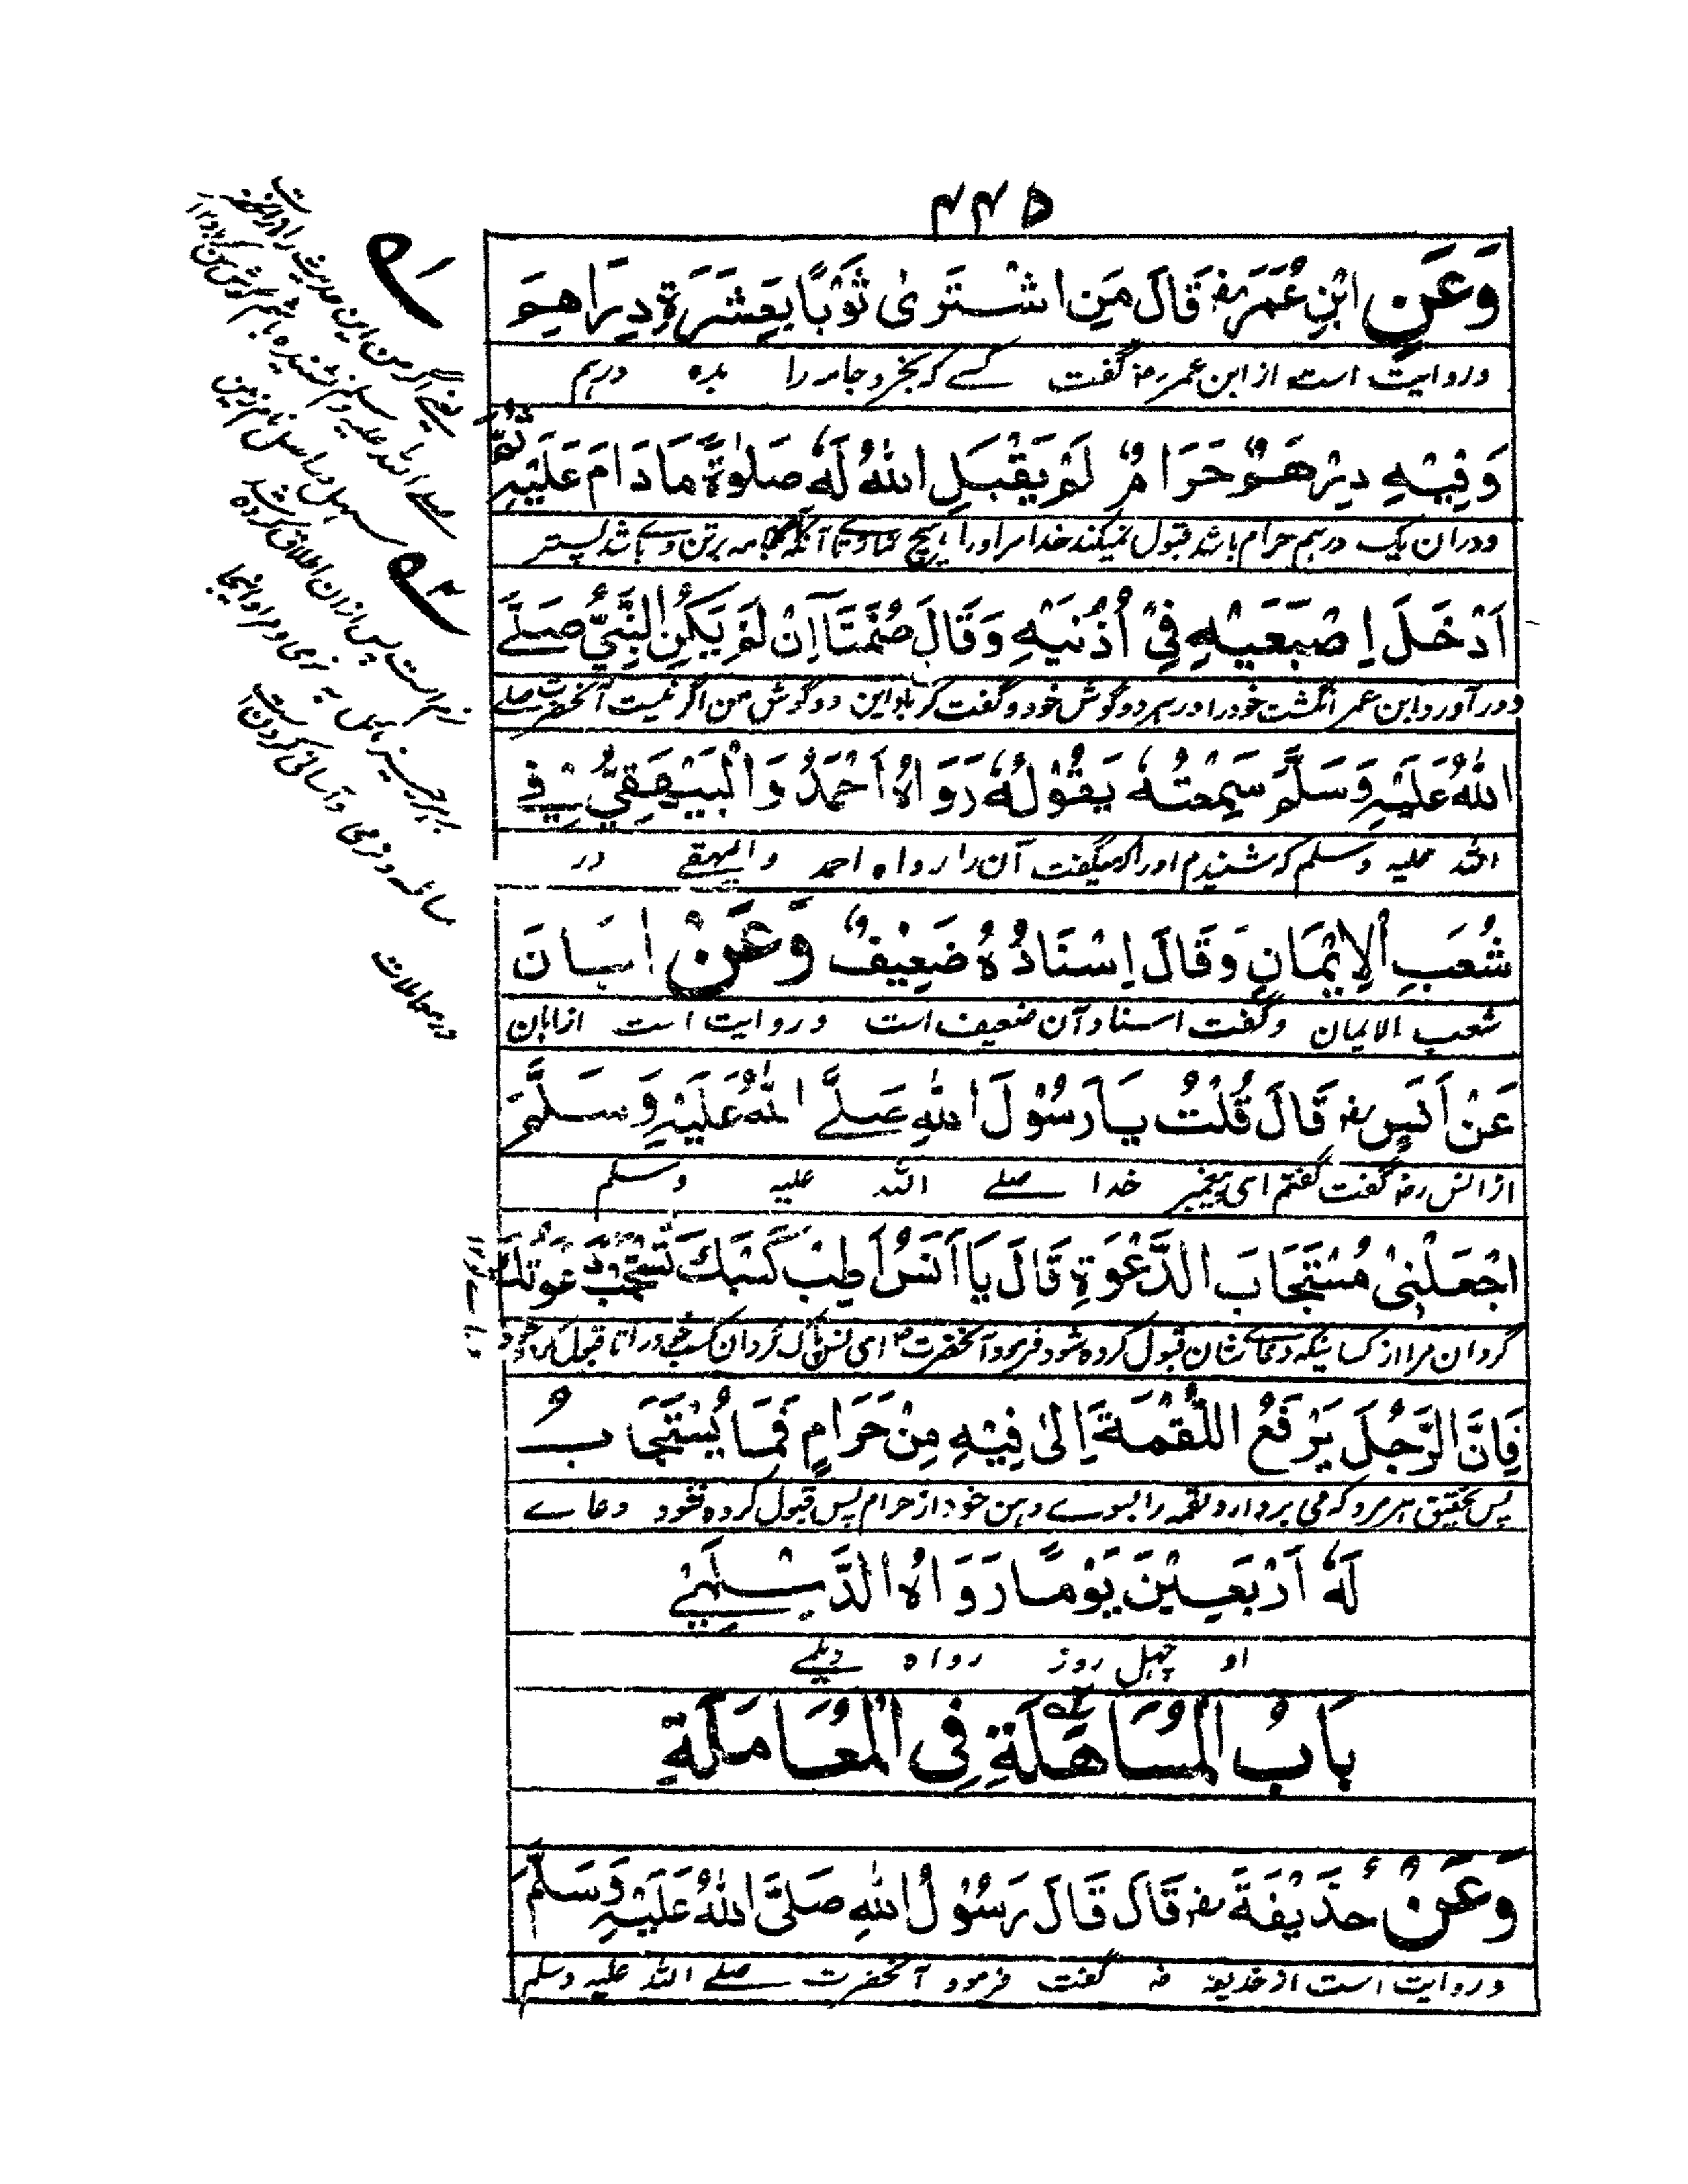 ۴۴۵
وَعَنِ ابْنِ عُمَرَ رضہ قَالَ مَنِ اشْتَرىٰ ثَوْبًا بِعَشَرَةِ دِرَاهِمَ
و روایت است از ابن عمر رضہ گفت کسے کہ بخرد جامہ را بدہ درہم
وَفِيْهِ دِرْهَمٌ حَرَامٌ لَمْ يَقْبَلِ اللهُ لَهٗ صَلٰوةً مَا دَامَ عَلَيْهِ ثُمَّ
و دران یک درہم حرام باشد قبول نمیکند خدا مر اورا ہیچ نمازے تا آنکہ جامہ بر تن وے باشد پستر
اَدْخَلَ اِصْبَعَيْهِ فِيْ اُذُنَيْهِ وَقَالَ صُمَّتَا اِنْ لَمْ يَكُنِ النَّبِيُّ صَلَّے
و در آورد ابن عمر انگشت خود را در ہر دو گوش خود و گفت کر باد این دو گوش من اگر نیست آنحضرت صلے
اللهُ عَلَيْهِ وَسَلَّمَ سَمِعْتُهٗ يَقُوْلُهٗ رَوَاهُ اَحْمَدُ وَالْبَيْهَقِيُّ فِے
اللہ علیہ وسلم کہ شنیدم اورا کہ میگفت آن را رواہ احمد والبیہقے در
شُعَبِ الْاِيْمَانِ وَقَالَ اِسْنَادُهُ ضَعِيْفٌ وَعَنْ اَبَانَ
شعب الایمان و گفت اسناد آن ضعیف است و روایت است از ابان
عَنْ اَنَسٍ رضہ قَالَ قُلْتُ يَا رَسُوْلَ اللهِ صَلَّے اللهُ عَلَيْهِ وَسَلَّمَ
از انس رضہ گفت گفتم ای پیغمبر خدا صلے اللہ علیہ وسلم
اجْعَلْنِيْ مُسْتَجَابَ الدَّعْوَةِ قَالَ يَا اَنَسُ اَطِبْ كَسْبَكَ تُسْتَجَبْ دَعْوَتُكَ
گردان مرا از کسانیکہ دعاے شان قبول کردہ شود فرمود آنحضرت ای انس پاک گردان کسب خود را تا قبول کردہ شود
فَاِنَّ الرَّجُلَ يَرْفَعُ اللُّقْمَةَ اِلىٰ فِيْهِ مِنْ حَرَامٍ فَمَا يُسْتَجَابُ
پس بتحقیق ہر مرد کہ می بردارد لقمہ را بسوے دہن خود از حرام پس قبول کردہ نشود دعاے
لَهٗ اَرْبَعِيْنَ يَوْمًا رَوَاهُ الدَّيْلَمِيْ
او چہل روز رواہ دیلمے
بَابُ الْمُسَاهَلَةِ فِى الْمُعَامَلَةِ
وَعَنْ حُذَيْفَةَ رضہ قَالَ قَالَ رَسُوْلُ اللهِ صَلَّى اللهُ عَلَيْهِ وَسَلَّمَ
و روایت است از حذیفہ رضہ گفت فرمود آنحضرت صلے اللہ علیہ وسلم
یعنے اگر من این حدیث را از آنحضرت
صلے اللہ علیہ وسلم نشنیدہ باشم گوش من کر باد ۱۲
سہل در اصل نام زمین
نرم است پس ازان اطلاق کردہ شد
بہر چیز سہل بہ نرمی و مراد اینجا
مساہلہ و نرمی و آسانی کردن است
در معاملات